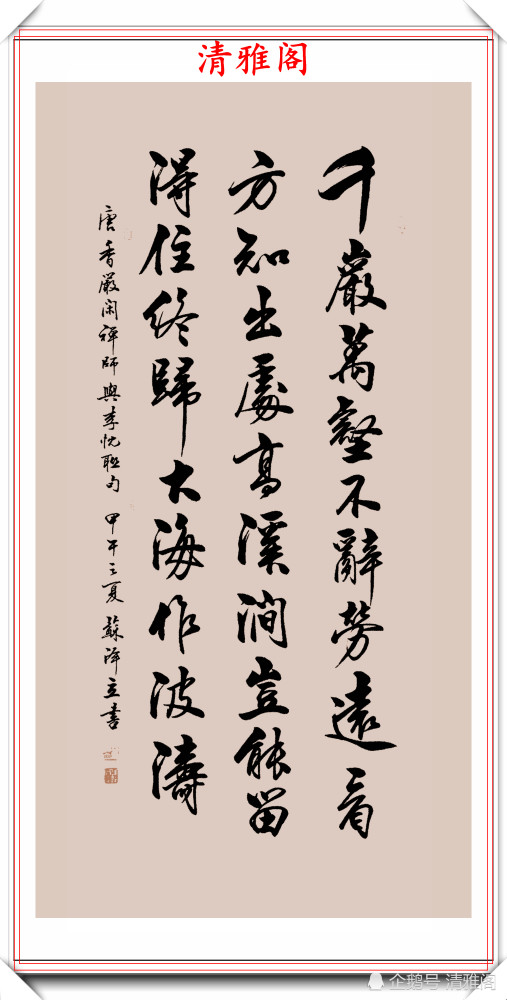 清雅阁
千巖萬壑不辭勞遠看
方知出處高溪澗豈能留
得住終歸大海作波濤
唐香嚴閑禪師與李忱聯句 甲午之夏 蘇澤立書
企鹅号 清雅阁